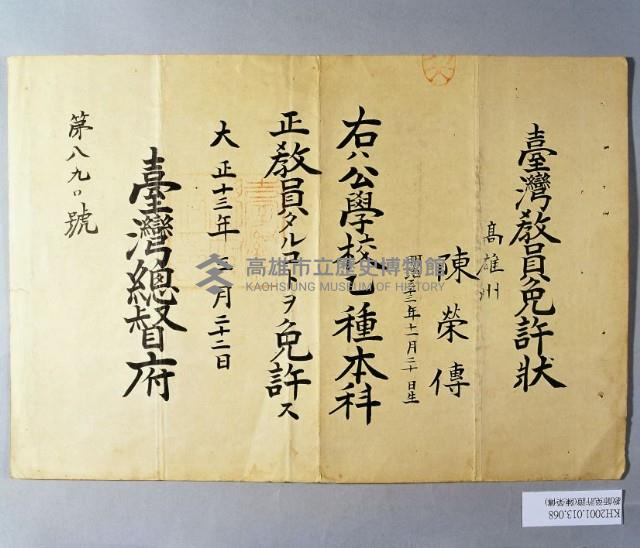 臺灣教員免許狀
高雄州
陳榮傳
明治三十三年十一月二十日生
右ハ公學校乙種本科
正教員タルコトヲ免許ス
大正十三年三月二十二日
臺灣總督府
第八九〇號
高雄市立歷史博物館
KAOHSIUNG MUSEUM OF HISTORY
KH2001.013.068
教師免許證(陳榮傳)